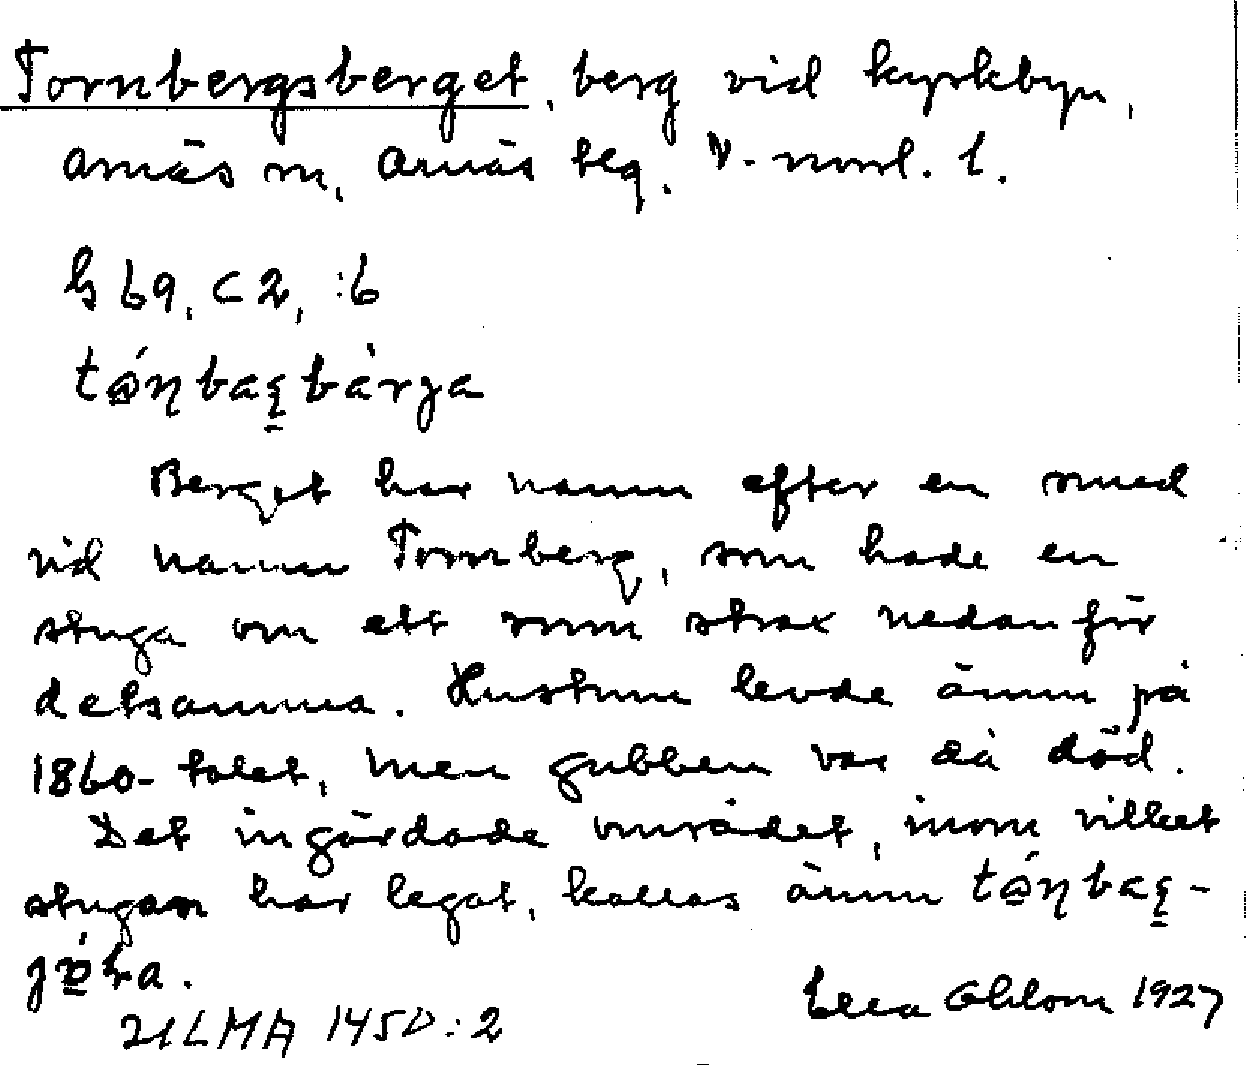 Tornbergsberget, berg vid kyrkbyn,
Arnäs sn, Arnäs tlg. V. norrl. l.
G 69, C 2, :6
Berget har namn efter en smed
vid namn Tornberg, som hade en
stuga om ett rum strax nedanför
detsamma. Hustrun levde ännu på
1860-talet, men gubben var då död.
Det ingärdade området, inom vilket
stugan har legat, kallas ännu
Ella Ohlson 1927
ULMA 1450:2